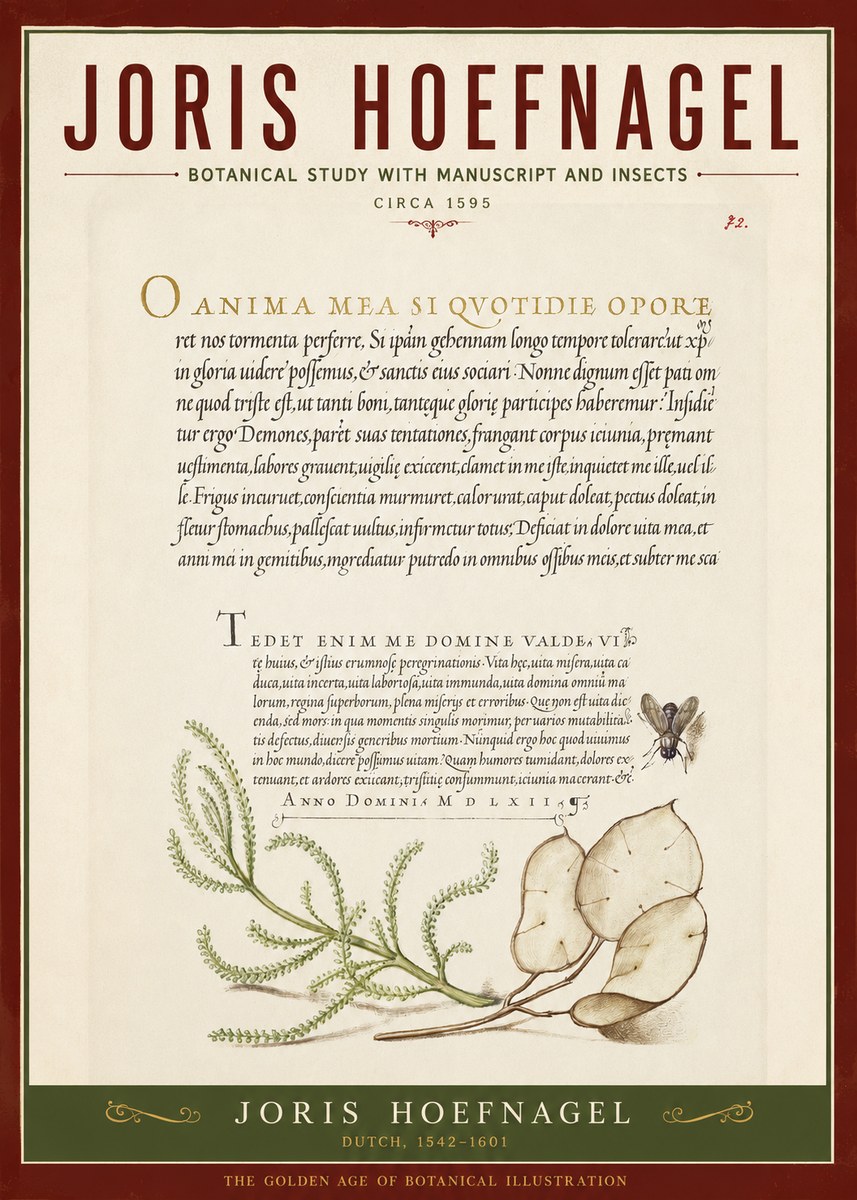 JORIS HOEFNAGEL
BOTANICAL STUDY WITH MANUSCRIPT AND INSECTS
CIRCA 1595
72.
O ANIMA MEA SI QVOTIDIE OPORE
ret nos tormenta perferre, Si ipãm gehennam longo tempore tolerare:ut xp̄
in gloria uidere possemus, & sanctis eius sociari · Nonne dignum esset pati om
ne quod triste est, ut tanti boni, tantęque glorię participes haberemur? Insidiē
tur ergo Demones, parēt suas tentationes, frangant corpus ieiunia, pręmant
uestimenta, labores grauent, uigilię exiccent, clamet in me iste, inquietet me ille, uel il
le. Frigus incuruet, conscientia murmuret, calor urat, caput doleat, pectus doleat, in
fletur stomachus, pallescat uultus, infirmetur totus: Deficiat in dolore uita mea, et
anni mei in gemitibus, ingrediatur putredo in omnibus ossibus meis, et subter me sca
TEDET ENIM ME DOMINE VALDE, VI
tę huius, & istius erumnosę peregrinationis · Vita hęc, uita misera, uita ca
duca, uita incerta, uita laboriosa, uita immunda, uita domina omniū ma
lorum, regina superborum, plena miserijs et erroribus · Quę non est uita dic
enda, sed mors: in qua momentis singulis morimur, per uarios mutabilita
tis defectus, diuersis generibus mortium · Nunquid ergo hoc quod uiuimus
in hoc mundo, dicere possumus uitam? Quam humores tumidant, dolores ex
tenuant, et ardores exiicant, tristitię consummunt, ieiunia macerant · &c.
ANNO DOMINI M D L X I I
JORIS HOEFNAGEL
DUTCH, 1542–1601
THE GOLDEN AGE OF BOTANICAL ILLUSTRATION